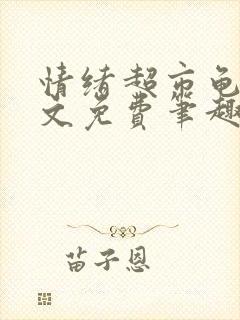 情绪超市龟
文免费笔趣
苗子恩